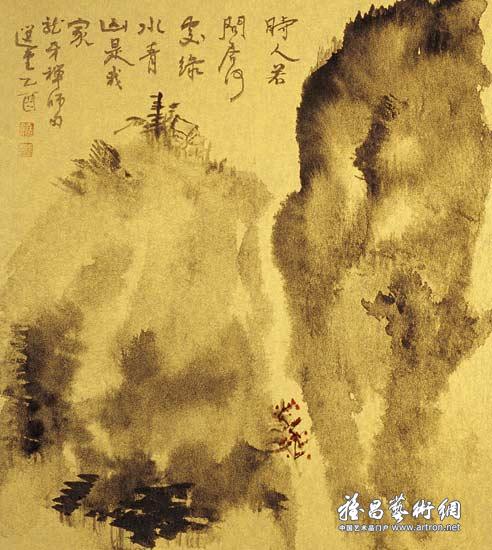 時人若
問居何
處綠
水青
山是我
家
龍牙禪師句
選堂乙酉
雅昌藝術網
中国艺术品门户 www.artron.net